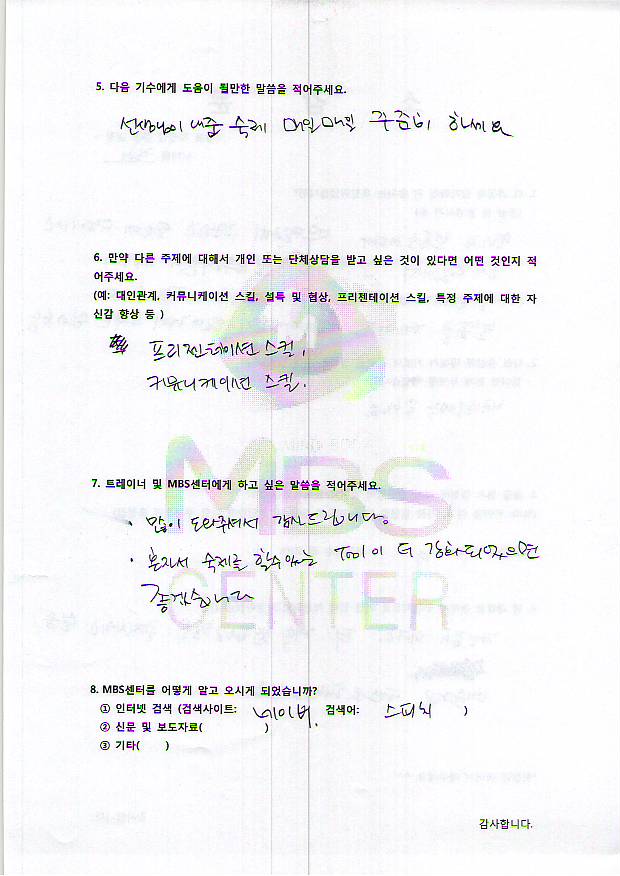 5. 다음 기수에게 도움이 될만한 말씀을 적어주세요.
선생님이 내준 숙제 매일매일 꾸준히 하세요
6. 만약 다른 주제에 대해서 개인 또는 단체상담을 받고 싶은 것이 있다면 어떤 것인지 적
어주세요.
(예: 대인관계, 커뮤니케이션 스킬, 설득 및 협상, 프리젠테이션 스킬, 특정 주제에 대한 자
신감 향상 등 )
프리젠테이션 스킬,
커뮤니케이션 스킬.
MBS
CENTER
7. 트레이너 및 MBS센터에게 하고 싶은 말씀을 적어주세요.
· 많이 도와주셔서 감사드립니다.
· 혼자서 숙제를 할수있는 Tool이 더 강화되었으면
좋겠습니다
8. MBS센터를 어떻게 알고 오시게 되었습니까?
① 인터넷 검색 (검색사이트: 네이버. 검색어: 스피치 )
② 신문 및 보도자료( )
③ 기타( )
감사합니다.